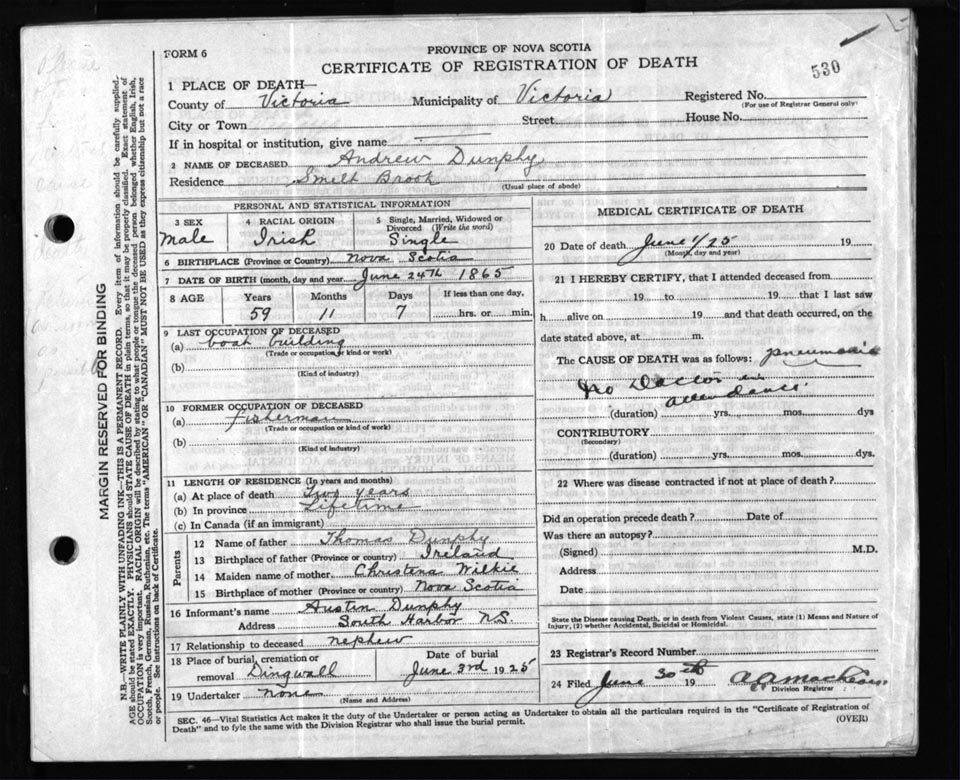 FORM 6
PROVINCE OF NOVA SCOTIA
CERTIFICATE OF REGISTRATION OF DEATH
530
1 PLACE OF DEATH—
County of Victoria Municipality of Victoria Registered No.
(For use of Registrar General only)
City or Town Street House No.
If in hospital or institution, give name
2 NAME OF DECEASED Andrew Dunphy
Residence Smelt Brook
(Usual place of abode)
PERSONAL AND STATISTICAL INFORMATION
3 SEX
Male
4 RACIAL ORIGIN
Irish
5 Single, Married, Widowed or Divorced (Write the word)
Single
6 BIRTHPLACE (Province or Country) Nova Scotia
7 DATE OF BIRTH (month, day and year) June 24th 1865
8 AGE Years Months Days If less than one day,
59 11 7 hrs. or min.
9 LAST OCCUPATION OF DECEASED
(a) boat building
(Trade or occupation or kind of work)
(b)
(Kind of industry)
10 FORMER OCCUPATION OF DECEASED
(a) fisherman
(Trade or occupation or kind of work)
(b)
(Kind of industry)
11 LENGTH OF RESIDENCE (In years and months)
(a) At place of death Two years
(b) In province Lifetime
(c) In Canada (if an immigrant)
Parents
12 Name of father Thomas Dunphy
13 Birthplace of father (Province or country) Ireland
14 Maiden name of mother Christena Wilkie
15 Birthplace of mother (Province or country) Nova Scotia
16 Informant's name Austin Dunphy
Address South Harbor N.S
17 Relationship to deceased nephew
18 Place of burial, cremation or removal Dingwall
Date of burial
June 3rd 1925
19 Undertaker none
(Name and Address)
MEDICAL CERTIFICATE OF DEATH
20 Date of death June 1/25 19
(Month, day and year)
21 I HEREBY CERTIFY, that I attended deceased from
19 to 19 that I last saw
h alive on 19 and that death occurred, on the
date stated above, at m.
The CAUSE OF DEATH was as follows: pneumonia
No Doctor in
attendance.
(duration) yrs. mos. dys
CONTRIBUTORY
(Secondary)
(duration) yrs. mos. dys.
22 Where was disease contracted if not at place of death?
Did an operation precede death? Date of
Was there an autopsy?
(Signed) M.D.
Address
Date
State the Disease causing Death, or in death from Violent Causes, state (1) Means and Nature of
Injury, (2) whether Accidental, Suicidal or Homicidal.
23 Registrar's Record Number
24 Filed June 30th 19
Division Registrar
SEC. 46—Vital Statistics Act makes it the duty of the Undertaker or person acting as Undertaker to obtain all the particulars required in the "Certificate of Registration of
Death" and to fyle the same with the Division Registrar who shall issue the burial permit.
(OVER)
MARGIN RESERVED FOR BINDING
N.B.—WRITE PLAINLY WITH UNFADING INK—THIS IS A PERMANENT RECORD. Every item of information should be carefully supplied.
AGE should be stated EXACTLY. PHYSICIANS should STATE CAUSE OF DEATH in plain terms, so that it may be properly classified. Exact statement of
OCCUPATION is very important. RACIAL ORIGIN will be described by stating to what people or tongue the deceased person belonged whether English, Irish,
Scotch, French, German, Russian, Ruthenian, etc. The terms "AMERICAN" OR "CANADIAN" MUST NOT BE USED as they express citizenship but not a race
or people. See instructions on back of Certificate.